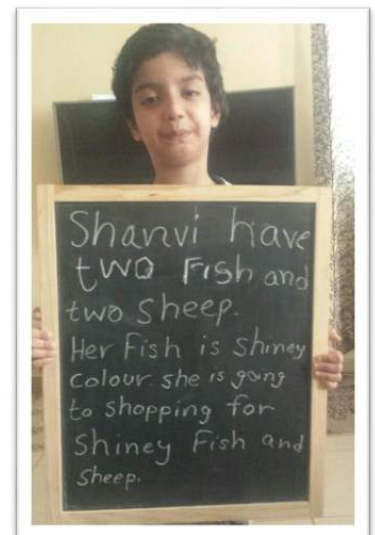 Shanvi have
two Fish and
two sheep.
Her Fish is shiney
colour. she is going
to shopping for
Shiney Fish and
sheep.